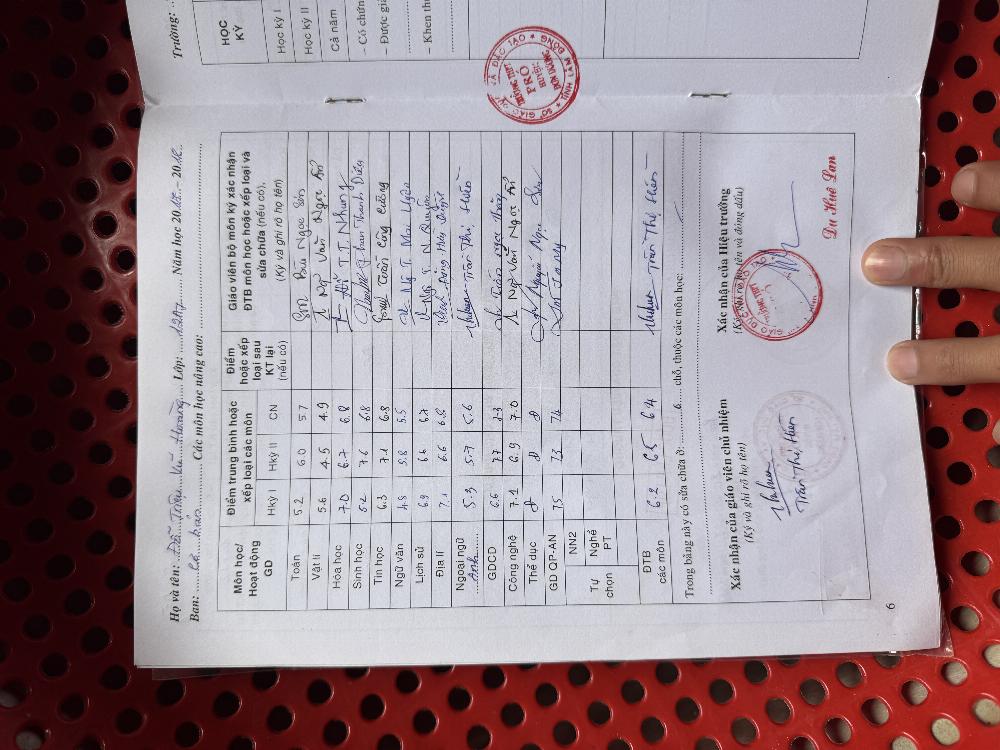 Trường:
HỌC KỲ
Học kỳ I
Học kỳ II
Cả năm
- Có chứn
- Được giả
- Khen thư
Họ và tên: Lớp: 12A7 Năm học 20 - 20
Ban: Cơ bản Các môn học nâng cao:
Môn học/ Hoạt động GD
Điểm trung bình hoặc xếp loại các môn
Điểm hoặc xếp loại sau KT lại (nếu có)
Giáo viên bộ môn ký xác nhận ĐTB môn học hoặc xếp loại và sửa chữa (nếu có), (Ký và ghi rõ họ tên)
Hkỳ I Hkỳ II CN
Toán 5.2 6.0 5.7 Bùi Ngọc Sơn
Vật lí 5.6 4.5 4.9 Ngô Văn Ngọc Ẩn
Hóa học 7.0 6.7 6.8 T.T. Nhung
Sinh học 5.2 7.6 6.8 Phan Thanh Diệu
Tin học 6.3 7.1 6.8 Trần Công Cường
Ngữ văn 4.8 5.8 5.5 Ng T. Mai Uyên
Lịch sử 6.9 6.6 6.7 Ng T. N. Quyên
Địa lí 7.1 6.6 6.8
Ngoại ngữ Anh 5.3 5.7 5.6 Trần Thị Hiền
GDCD 6.6 7.7 7.3 Trần Ngọc
Công nghệ 7.1 6.9 7.0 Ngô Văn Ngọc Ẩn
Thể dục đ đ đ Nguyễn Ngọc
GD QP-AN 7.5 7.3 7.4
Tự chọn
NN2
Nghề PT
ĐTB các môn 6.2 6.5 6.4 Trần Thị Hiền
Trong bảng này có sửa chữa ở: 6 chỗ, thuộc các môn học: /
Xác nhận của giáo viên chủ nhiệm
(Ký và ghi rõ họ tên)
Trần Thị Hiền
Xác nhận của Hiệu trưởng
(Ký, ghi rõ họ tên và đóng dấu)
Du Huê Lan
6